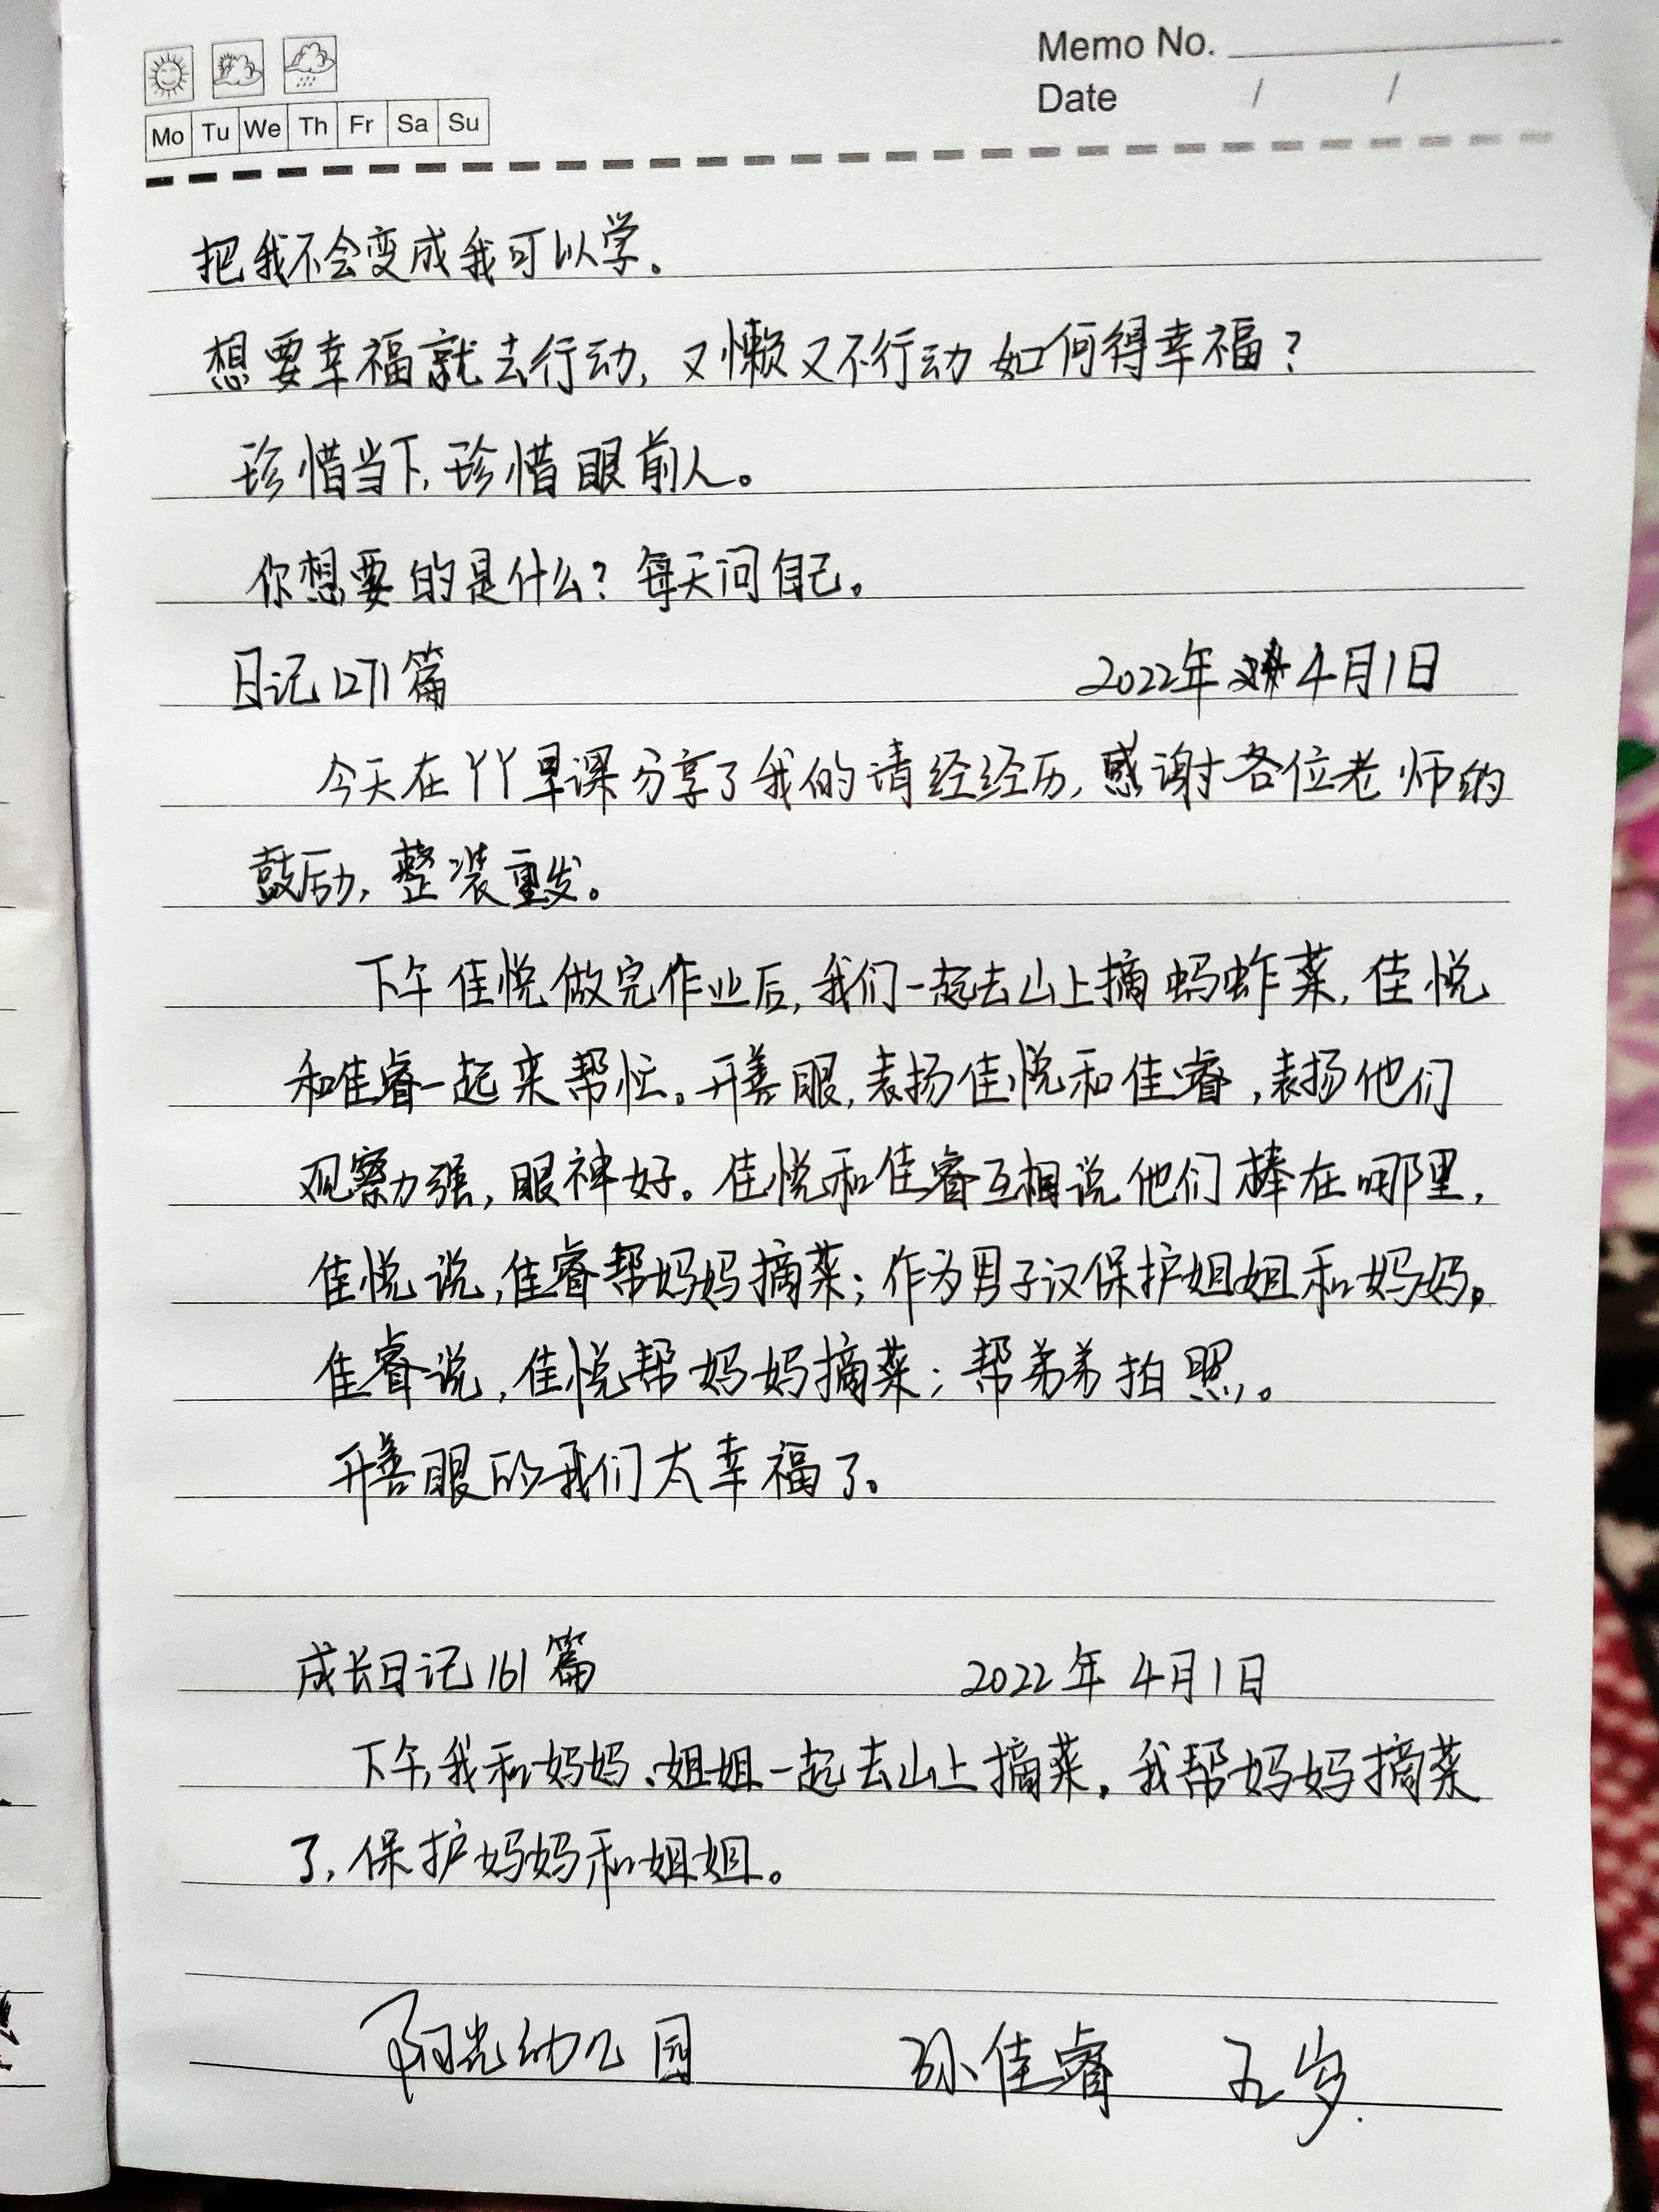 Memo No.
Mo Tu We Th Fr Sa Su
Date / /
把我不会变成我可以学。
想要幸福就去行动,又懒又不行动如何得幸福?
珍惜当下,珍惜眼前人。
你想要的是什么?每天问自己。
日记1271篇 2022年4月1日
今天在丫丫早课分享了我的请经经历,感谢各位老师的
鼓励,整装重发。
下午佳悦做完作业后,我们一起去山上摘蚂蚱菜,佳悦
和佳睿一起来帮忙。开善眼,表扬佳悦和佳睿,表扬他们
观察力强,眼神好。佳悦和佳睿互相说他们棒在哪里,
佳悦说,佳睿帮妈妈摘菜;作为男子汉保护姐姐和妈妈。
佳睿说,佳悦帮妈妈摘菜;帮弟弟拍照。
开善眼的我们太幸福了。
成长日记161篇 2022年4月1日
下午,我和妈妈、姐姐一起去山上摘菜。我帮妈妈摘菜
了,保护妈妈和姐姐。
阳光幼儿园 孙佳睿 五岁.